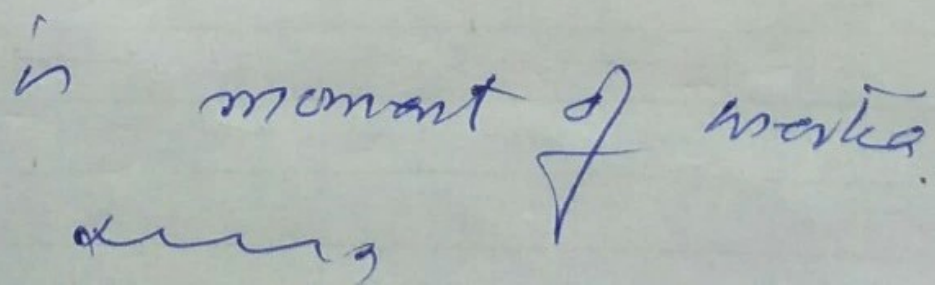 is moment of inertia.